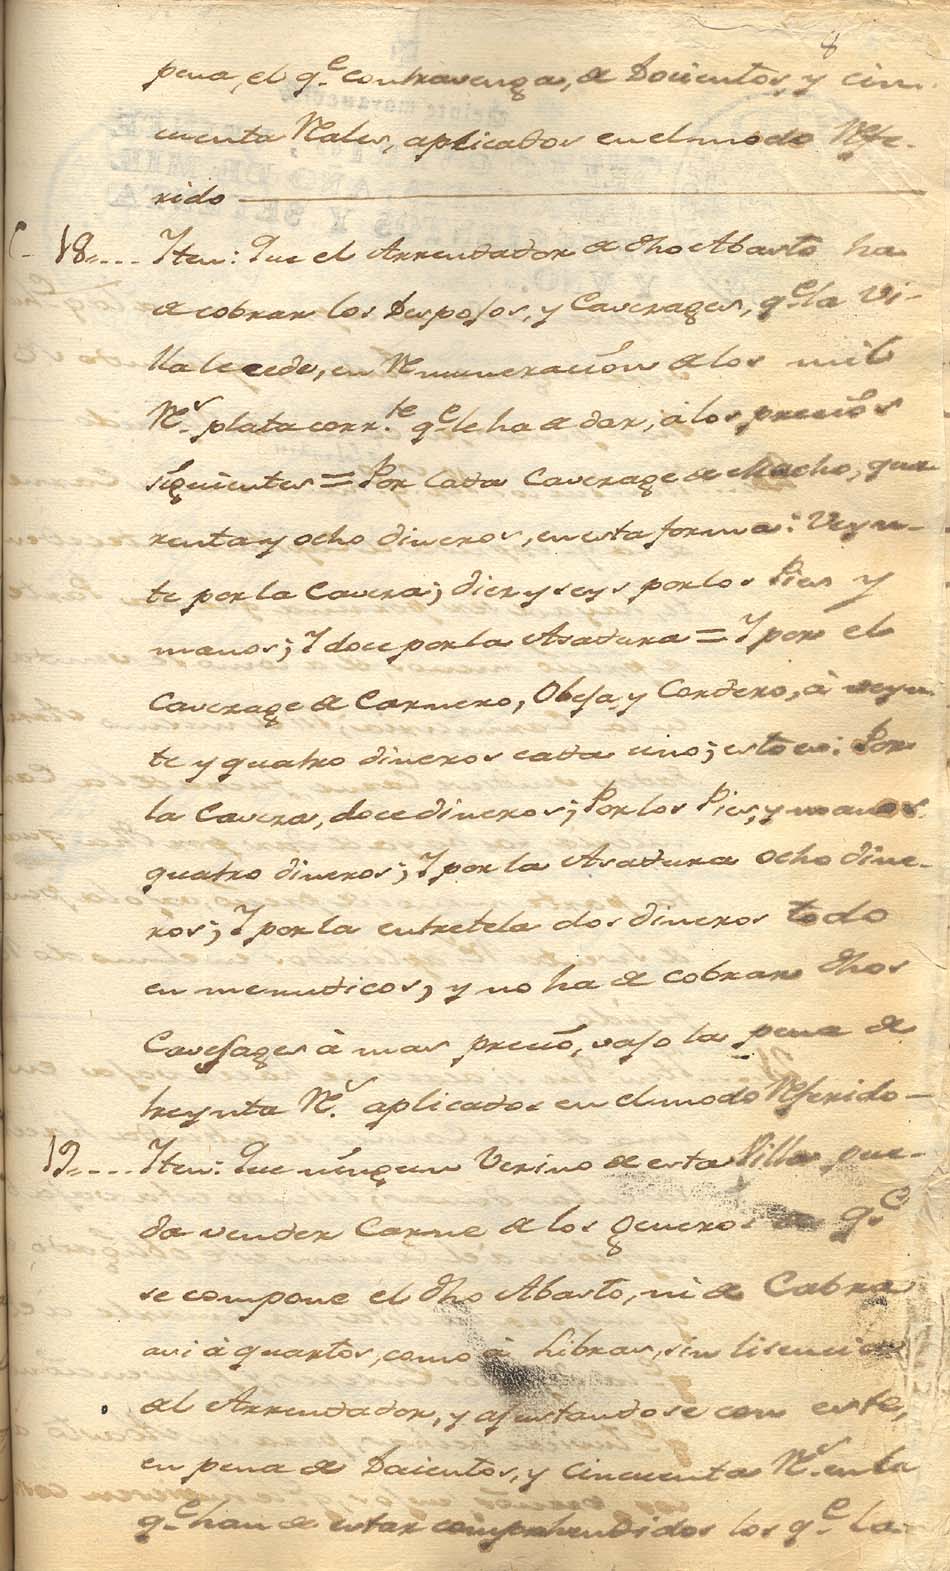 8
pena, el q.e contravenga, de Docientos, y cin-
cuenta Reales, aplicados en el modo Refe-
rido
18.... Iten: Que el Arrendador de dho Abasto ha
de cobrar los Despojos, y Caverages, q.e la Vi-
lla le cede, en Remuneración de los mil
R.s plata corr.te q.e le ha de dar, à los precios
siguientes = Por Cada Caverage de Macho, qua
renta y ocho dineros, en esta forma: Veyn-
te por la Cavera; diez y seys por los Pies y
manos; Y doce por la Asadura = Y por el
Caverage de Carnero, Obeja, y Cordero, à veyn-
te y quatro dineros cada uno; esto es: Por
la Cavera, doce dineros; Por los Pies, y manos
quatro dineros; Y por la Asadura ocho dine-
ros; Y por la entretela dos dineros todo
en menudicos, y no ha de cobrar dhos
Cavesages à mas precio, vajo la pena de
treynta R.s aplicados en el modo Referido
19.... Iten: Que ningun Vecino de esta Villa pue-
da vender Carne de los generos de q.e
se compone el dho Abasto, ni de Cabra
asi à quartos, como à Libras, sin lisencia
del Arrendador, y ajustandose con este,
en pena de Docientos, y Cincuenta R.s en la
q.e han de estar comprehendidos los q.e la-